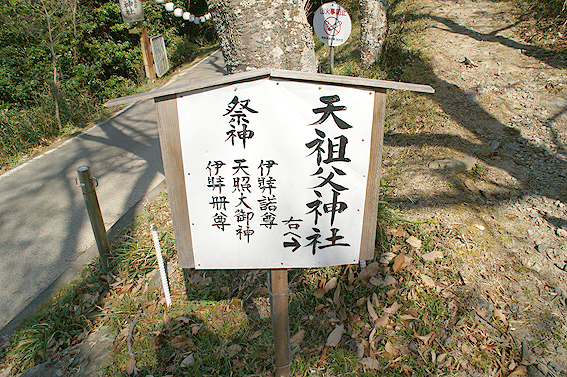 天祖父神社
右へ→
祭神
伊弉諾尊
天照大御神
伊弉冊尊